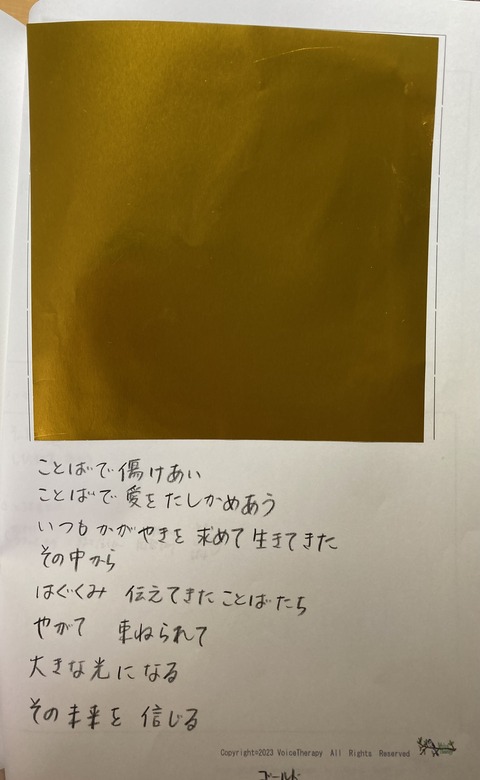 ことばで傷けあい
ことばで愛をたしかめあう
いつもかがやきを 求めて生きてきた
その中から
はぐくみ 伝えてきたことばたち
やがて 束ねられて
大きな光になる
その未来を 信じる
Copyright©2023 VoiceTherapy All Rights Reserved
ゴールド